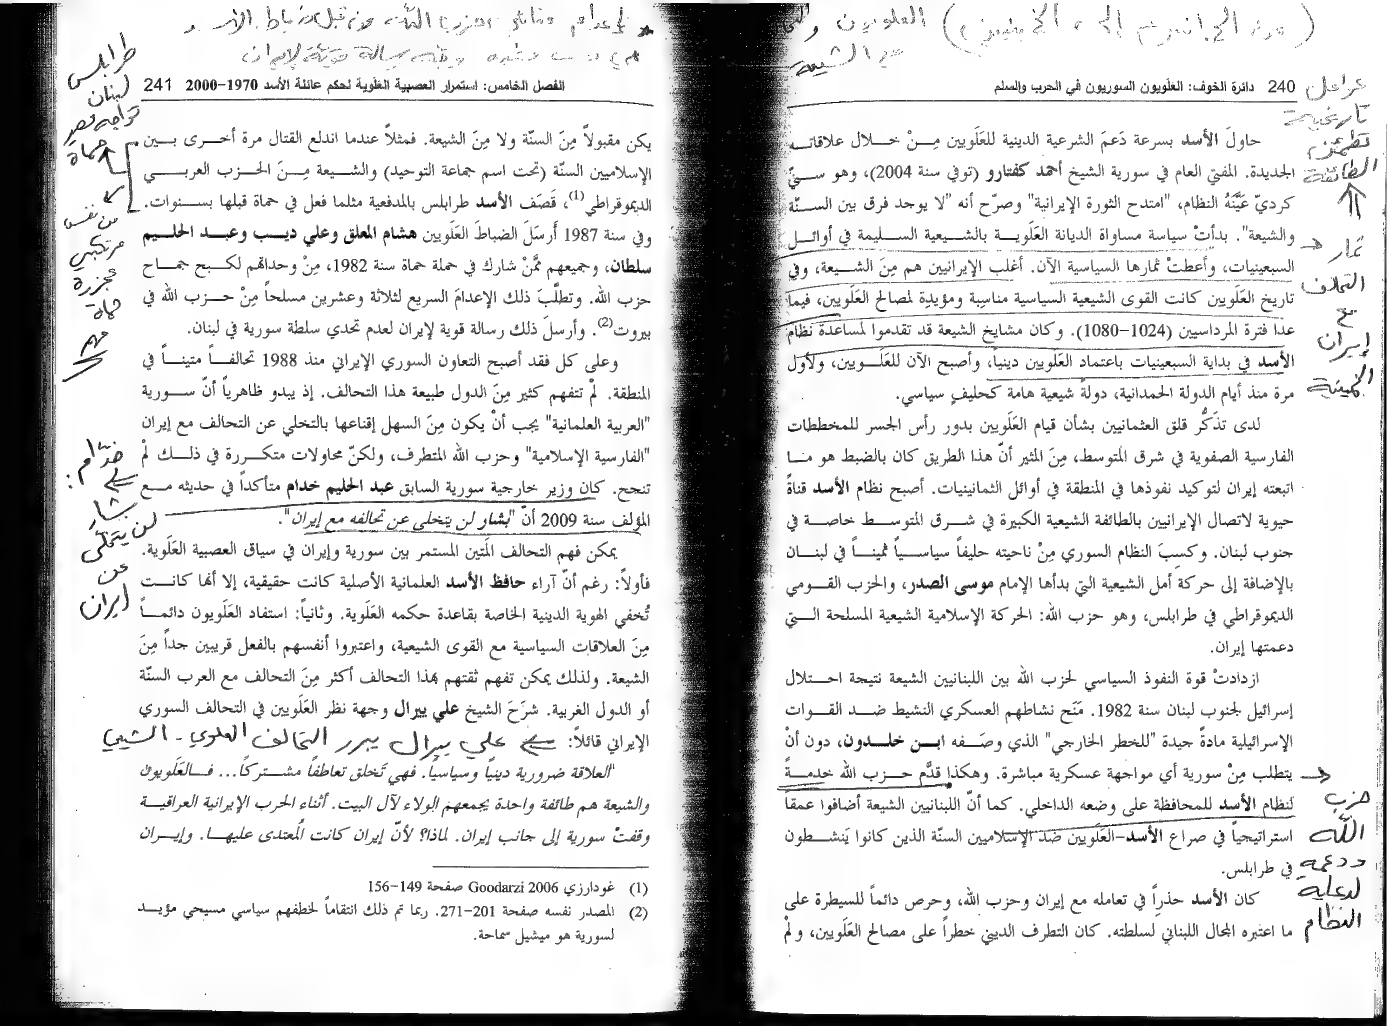 (من الحمدانيين إلى الخميني) العلويون
عن الشيعة
240 دائرة الخوف: العلويون السوريون في الحرب والسلم
عوامل
تاريخية
تطمئن
الطائفة
ثمار
التحالف
مع
إيران
الخمينية
حاولَ الأسد بسرعة دَعمَ الشرعية الدينية للعَلَويين مِنْ خلال علاقاته
الجديدة. المفتي العام في سورية الشيخ أحمد كفتارو (توفي سنة 2004)، وهو سنيّ
كرديّ عَيَّنَهُ النظام، "امتدح الثورة الإيرانية" وصرّح أنه "لا يوجد فرق بين السنّة
والشيعة". بدأتْ سياسة مساواة الديانة العَلَوية بالشيعية السليمة في أوائل
السبعينيات، وأعطتْ ثمارها السياسية الآن. أغلب الإيرانيين هم مِنَ الشيعة، وفي
تاريخ العَلَويين كانت القوى الشيعية السياسية مناسِبة ومؤيدِة لمصالح العَلَويين، فيما
عدا فترة المرداسيين (1024-1080). وكان مشايخ الشيعة قد تقدموا لمساعدة نظام
الأسد في بداية السبعينيات باعتماد العَلَويين دينياً، وأصبح الآن للعَلَويين، ولأول
مرة منذ أيام الدولة الحمدانية، دولةً شيعية هامة كحليفٍ سياسي.
لدى تذَكُّر قلق العثمانيين بشأن قيام العَلَويين بدور رأس الجسر للمخططات
الفارسية الصفوية في شرق المتوسط، مِنَ المثير أنّ هذا الطريق كان بالضبط هو ما
اتبعته إيران لتوكيد نفوذها في المنطقة في أوائل الثمانينيات. أصبح نظام الأسد قناةً
حيوية لاتصال الإيرانيين بالطائفة الشيعية الكبيرة في شرق المتوسط خاصة في
جنوب لبنان. وكسِبَ النظام السوري مِنْ ناحيته حليفاً سياسياً ثميناً في لبنان
بالإضافة إلى حركة أمل الشيعية التي بدأها الإمام موسى الصدر، والحزب القومي
الديموقراطي في طرابلس، وهو حزب الله: الحركة الإسلامية الشيعية المسلحة التي
دعمتها إيران.
ازدادتْ قوة النفوذ السياسي لحزب الله بين اللبنانيين الشيعة نتيجة احتلال
إسرائيل لجنوب لبنان سنة 1982. مَنَح نشاطهم العسكري النشيط ضد القوات
الإسرائيلية مادةً جيدة "للخطر الخارجي" الذي وصَفه ابن خلدون، دون أنْ
يتطلب مِنْ سورية أي مواجهة عسكرية مباشرة. وهكذا قدَّم حزب الله خدمةً
لنظام الأسد للمحافظة على وضعه الداخلي. كما أنّ اللبنانيين الشيعة أضافوا عمقاً
استراتيجياً في صراع الأسد-العَلَويين ضد الإسلاميين السنّة الذين كانوا يَنشطون
في طرابلس.
حزب
الله
ودعمه
لدعاية
النظام
كان الأسد حذرِاً في تعامله مع إيران وحزب الله، وحرص دائماً للسيطرة على
ما اعتبره المجال اللبناني لسلطته. كان التطرف الديني خطراً على مصالح العَلَويين، ولمْ
وفيه رسالة قوية لإيران
الفصل الخامس: استمرار العصبية العَلَوية لحكم عائلة الأسد 1970-2000 241
طرابلس
لبنان
تواجه مصير
حماة
من نفس
مرتكبي
مجزرة
حماة
مهم
يكن مقبولاً مِنَ السنّة ولا مِنَ الشيعة. فمثلاً عندما اندلع القتال مرة أخرى بين
الإسلاميين السنّة (تحت اسم جماعة التوحيد) والشيعة مِنَ الحزب العربي
الديموقراطي(1)، قَصَف الأسد طرابلس بالمدفعية مثلما فعل في حماة قبلها بسنوات.
وفي سنة 1987 أَرسَلَ الضباطَ العَلَويين هشام المعلق وعلي ديب وعبد الحليم
سلطان، وجميعهم ممَّنْ شارك في حملة حماة سنة 1982، مِنْ وحداتهم لكبح جماح
حزب الله. وتطلَّبَ ذلك الإعدامَ السريع لثلاثة وعشرين مسلحاً مِنْ حزب الله في
بيروت(2). وأرسلَ ذلك رسالة قوية لإيران لعدم تحدي سلطة سورية في لبنان.
وعلى كل فقد أصبح التعاون السوري الإيراني منذ 1988 تحالفاً متيناً في
المنطقة. لمْ تتفهم كثير مِنَ الدول طبيعة هذا التحالف. إذ يبدو ظاهرياً أنّ سورية
"العربية العلمانية" يجب أنْ يكون مِنَ السهل إقناعها بالتخلي عن التحالف مع إيران
"الفارسية الإسلامية" وحزب الله المتطرف، ولكنّ محاولات متكررة في ذلك لمْ
تنجح. كان وزير خارجية سورية السابق عبد الحليم خدام متأكداً في حديثه مع
المؤلف سنة 2009 أن "بشار لن يتخلى عن تحالفه مع إيران".
خدام:
بشار
لن يتخلّى
عن
إيران
يمكن فهم التحالف المَتين المستمر بين سورية وإيران في سياق العصبية العَلَوية.
فأولاً: رغم أنّ آراء حافظ الأسد العلمانية الأصلية كانت حقيقية، إلا أنها كانت
تُخفي الهوية الدينية الخاصة بقاعدة حكمه العَلَوية. وثانياً: استفاد العَلَويون دائماً
مِنَ العلاقات السياسية مع القوى الشيعية، واعتبروا أنفسهم بالفعل قريبين جداً مِنَ
الشيعة. ولذلك يمكن تفهم ثقتهم بهذا التحالف أكثر مِنَ التحالف مع العرب السنّة
أو الدول الغربية. شرَحَ الشيخ علي ييرال وجهة نظر العَلَويين في التحالف السوري
الإيراني قائلاً: علي ييرال يبرر التحالف العلوي - الشيعي
"العلاقة ضرورية دينياً وسياسياً. فهي تَخلق تعاطفاً مشتركاً... فالعَلَويون
والشيعة هم طائفة واحدة يجمعهم الولاء لآل البيت. أثناء الحرب الإيرانية العراقية
وقفتْ سورية إلى جانب إيران. لماذا؟ لأنّ إيران كانت المُعتدى عليها. وإيران
(1) غودارزي Goodarzi 2006 صفحة 149-156
(2) المصدر نفسه صفحة 201-271. ربما تم ذلك انتقاماً لخطفهم سياسي مسيحي مؤيد
لسورية هو ميشيل سماحة.